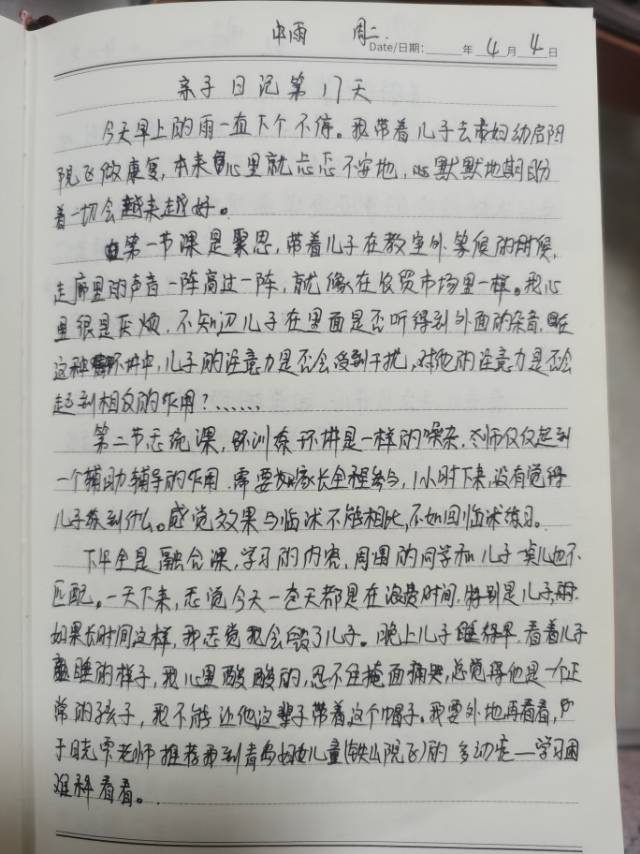 中雨 周二.
Date/日期: 年 4 月 4 日
亲子日记第17天
今天早上的雨一直下个不停。我带着儿子去市妇幼启阳
院区做康复,本来心里就忐忑不安地,默默地期盼
着一切会越来越好。
第一节课是聚思,带着儿子在教室外等候的时候,
走廊里的声音一阵高过一阵,就像在农贸市场里一样。我心
里很是厌烦,不知边儿子在里面是否听得到外面的杂音,在
这种环境中,儿子的注意力是否会受到干扰,对他的注意力是否会
起到相反的作用?......
第二节感统课,环训练环境是一样的嘈杂,老师仅仅起到
一个辅助辅导的作用.需要家长全程参与,1小时下来,没有觉得
儿子练到什么。感觉效果与临沭不能相比,不如回临沭练习。
下午全是融合课,学习的内容,周围的同学和儿子一点儿也不
匹配。一天下来,感觉今天一整天都是在浪费时间.特别是儿子的.
如果长时间这样,我感觉我会毁了儿子。晚上儿子睡得早,看着儿子
熟睡的样子,我心里酸酸的,忍不住掩面痛哭,总觉得他是一个正
常的孩子,我不能让他这辈子带着这个帽子。我要外地再看看,
于晓雯老师推荐要到青岛妇女儿童(铁山院区)的多动症—学习困
难科看看。